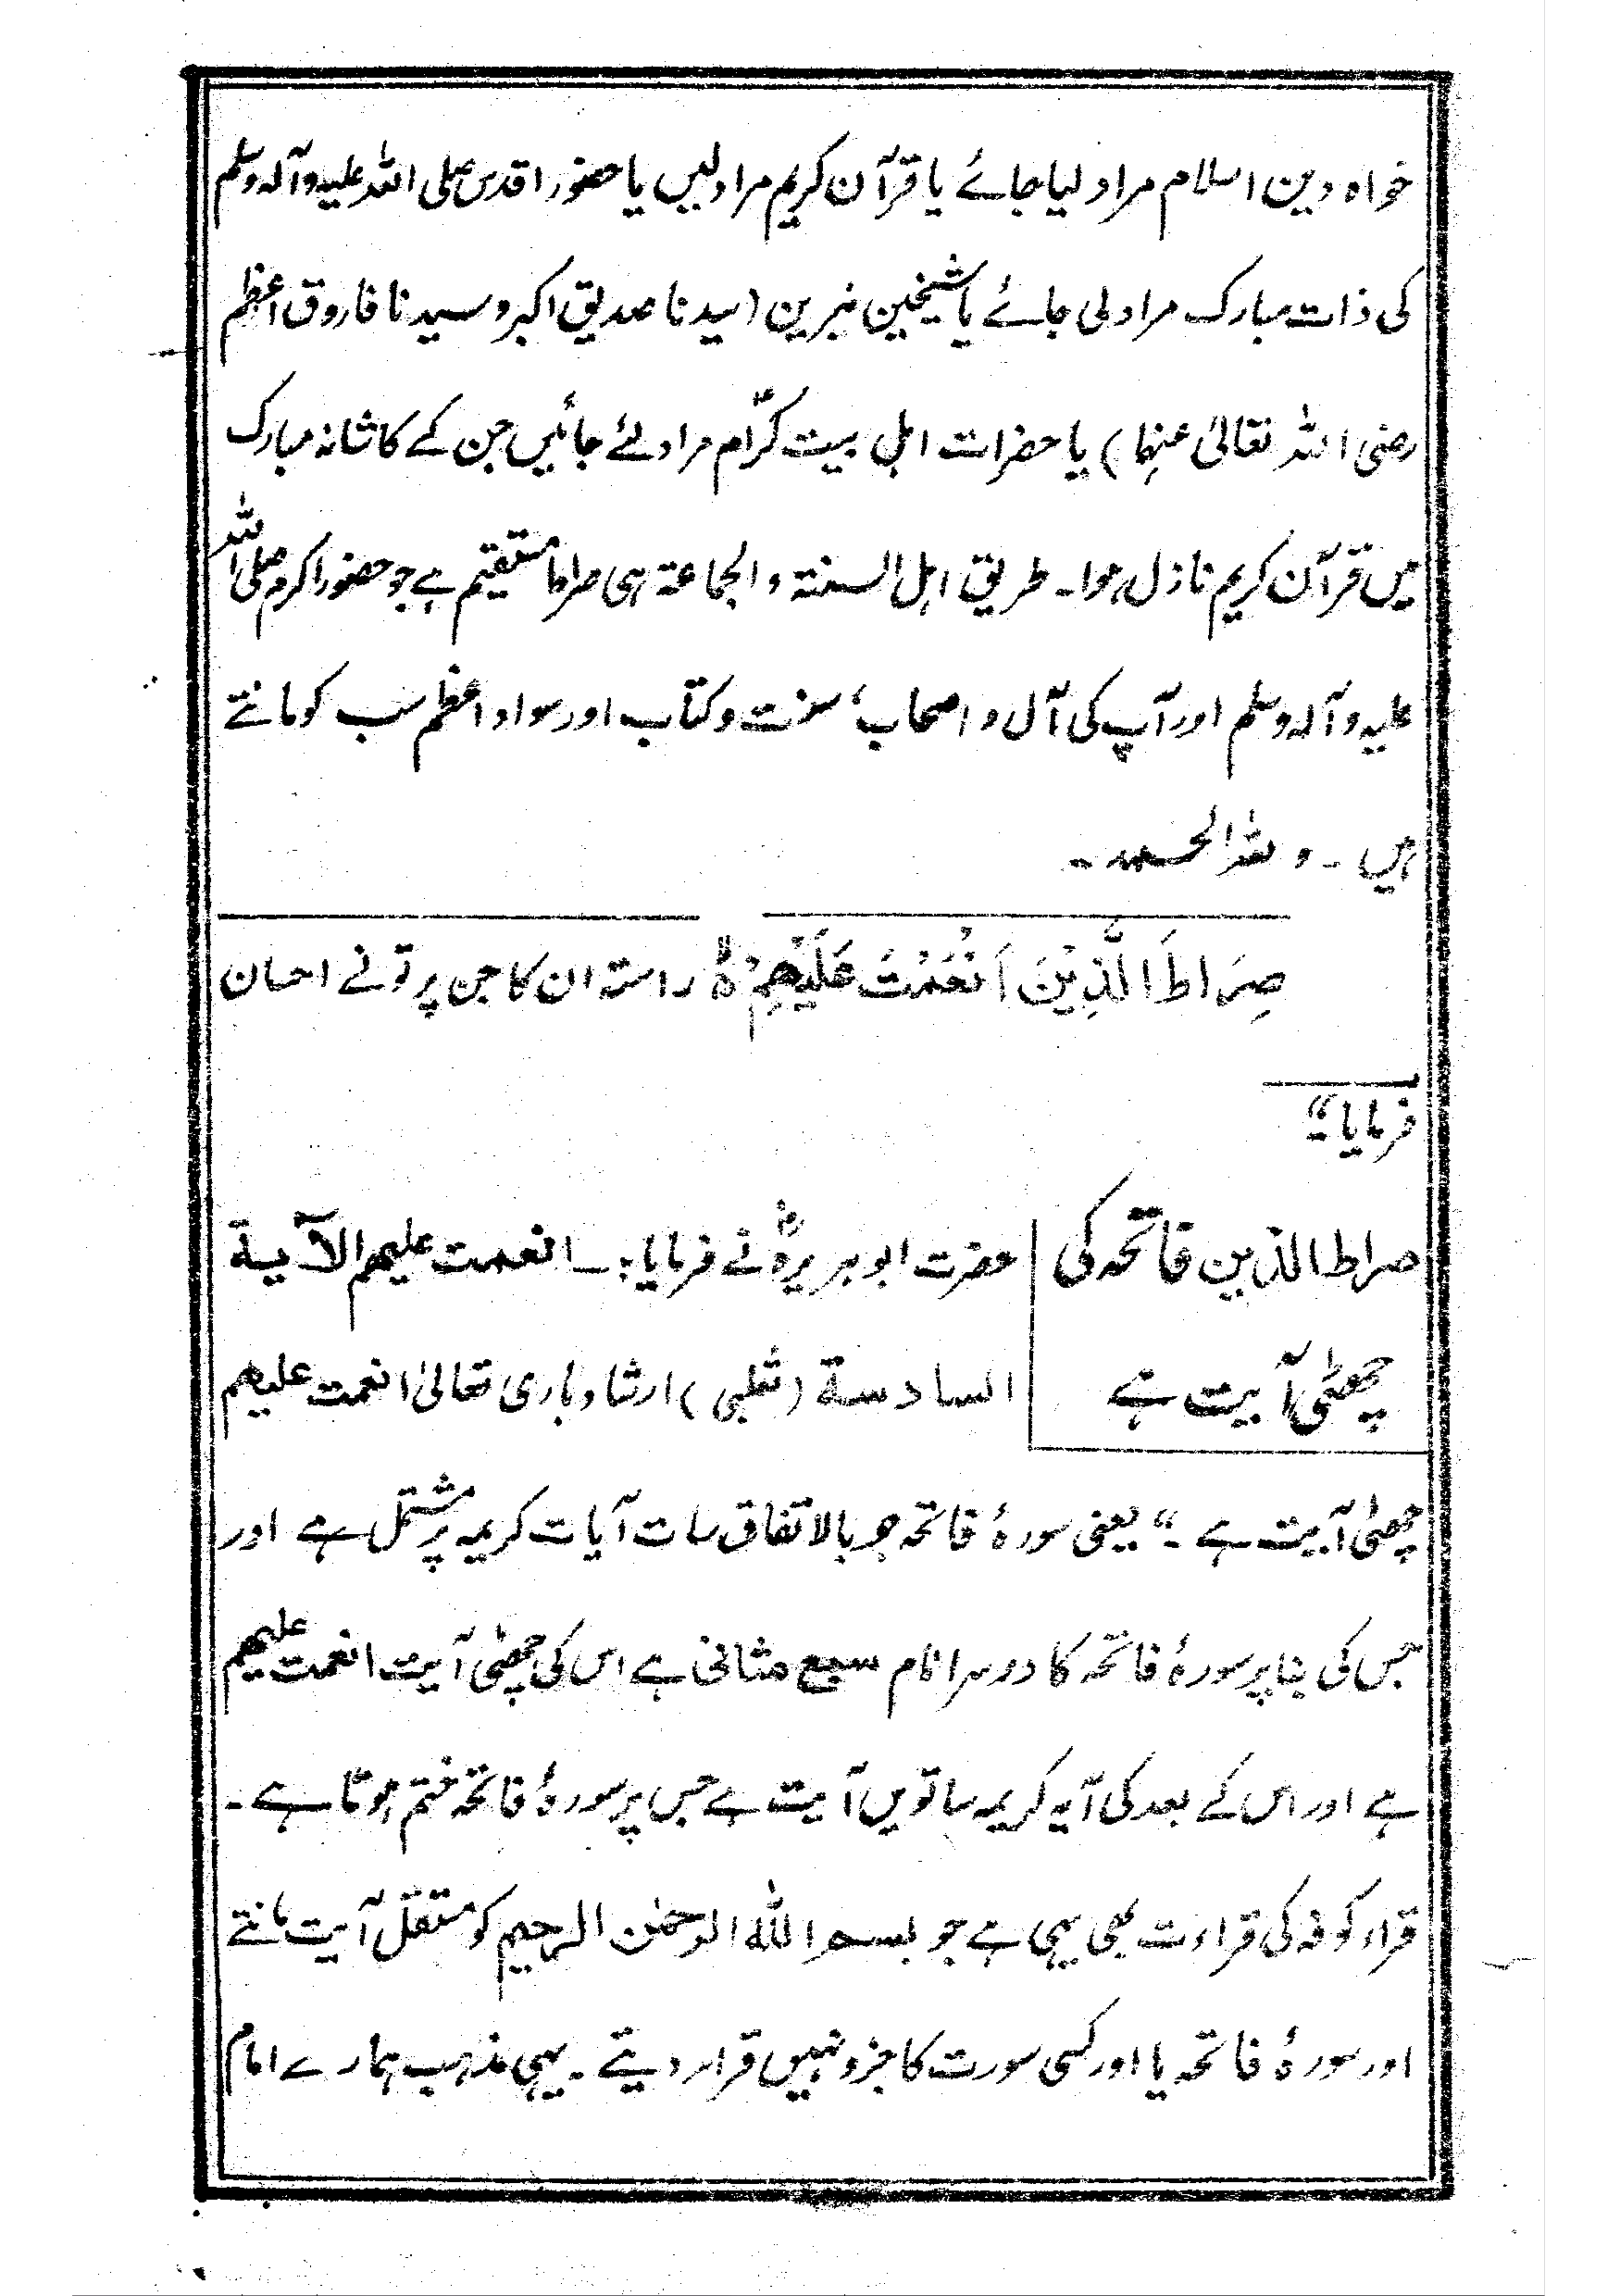 خواہ دین اسلام مراد لیا جائے یا قرآن کریم مراد لیں یا حضور اقدس صلی اللہ علیہ وآلہ وسلم
کی ذات مبارک مراد لی جائے یا شیخین نیرین (سیدنا صدیق اکبر و سیدنا فاروق اعظم
رضی اللہ تعالیٰ عنہما) یا حضرات اہل بیت کرام مراد لئے جائیں جن کے کاشانہ مبارک
میں قرآن کریم نازل ہوا۔ طریق اہل السنۃ و الجماعۃ ہی صراط مستقیم ہے جو حضور اکرم صلی اللہ
علیہ و آلہ وسلم اور آپ کی آل و اصحاب، سنت و کتاب اور سواد اعظم سب کو مانتے
ہیں ۔ و للہ الحمد ۔
صِرَاطَ الَّذِیْنَ اَنْعَمْتَ عَلَیْھِمْ ہٗ راستہ ان کا جن پر تو نے احسان
فرمایا۔“
صراط الذین فاتحہ کی
چھٹی آیت ہے
حضرت ابوہریرہؓ نے فرمایا:۔ انعمت علیھم الآیۃ
السادسۃ (ثعلبی) ارشاد باری تعالیٰ انعمت علیھم
چھٹی آیت ہے ۔“ یعنی سورۂ فاتحہ جو بالاتفاق سات آیات کریمہ پر مشتمل ہے اور
جس کی بنا پر سورۂ فاتحہ کا دوسرا نام سبع مثانی ہے اس کی چھٹی آیت انعمت علیھم
ہے اور اس کے بعد کی آیہ کریمہ ساتویں آیت ہے جس پر سورۂ فاتحہ ختم ہوتا ہے ۔
قراء کوفہ کی قراءت بھی یہی ہے جو بسم اللہ الرحمٰن الرحیم کو مستقل آیت مانتے
اور سورۂ فاتحہ یا اور کسی سورت کا جزو نہیں قرار دیتے ۔ یہی مذہب ہمارے امام